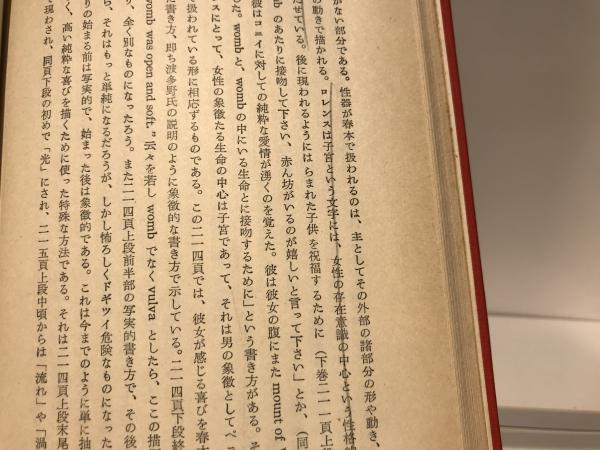 がない部分である。性器が春本で扱われるのは、主としてその外部の諸部分の形や動き、
の動きで描かれる。ロレンスは子宮という文字には、女性の存在意識の中心という性格
たせている。後に現われるようにはらまれた子供を祝福するために(下巻二一一頁上段
mb のあたりに接吻して下さい、赤ん坊がいるのが嬉しいと言って下さい」とか、(同
彼はコニイに対しての純粋な愛情が湧くのを覚えた。彼は彼女の腹にまた mount of
た。womb と、womb の中にいる生命とに接吻するために」という書き方がある。そ
スにとって、女性の象徴たる生命の中心は子宮であって、それは男の象徴としてペニ
扱われている形に相応ずるものである。この二一四頁では、彼女が感じる喜びを春本
書き方、即ち波多野氏の説明のように象徴的な書き方で示している。二一四頁下段終
womb was open and soft." 云々を若し womb でなく vulva としたら、ここの描
り、全く別なものになったろう。また二一四頁上段前半部の写実的書き方で、その後
ら、それはもっと単純になるだろうが、しかし怖ろしくドギツイ危険なものになった
りの始まる前は写実的で、始まった後は象徴的である。これは今までのように単に抽
く、高い純粋な喜びを描くために使った特殊な方法である。それは二一四頁上段末尾
現わされ、同頁下段の初めで「光」にされ、二一五頁上段中頃からは「流れ」や「渦